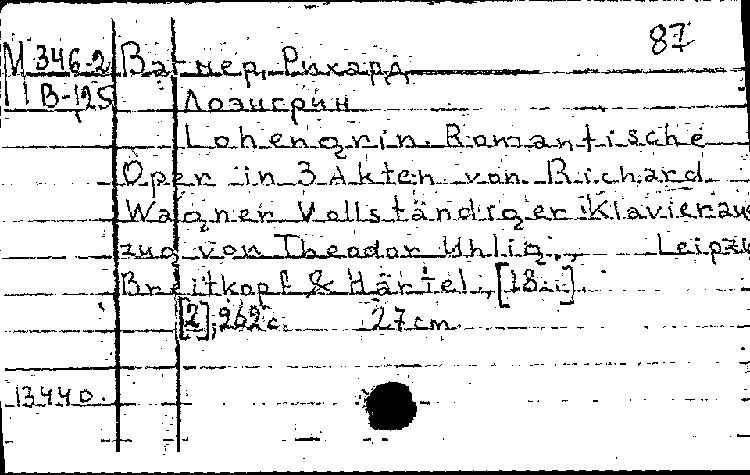 87
М 346-2 Вагнер, Рихард
В-125 Лоэнгрин
Lohengrin. Romantische
Oper in 3 Akten von Richard
Wagner Vollständiger Klavieraus
zug von Theodor Uhlig., Leipzi
Breitkopf & Härtel, [18..].
[2], 262 с. 27 cm.
13440.